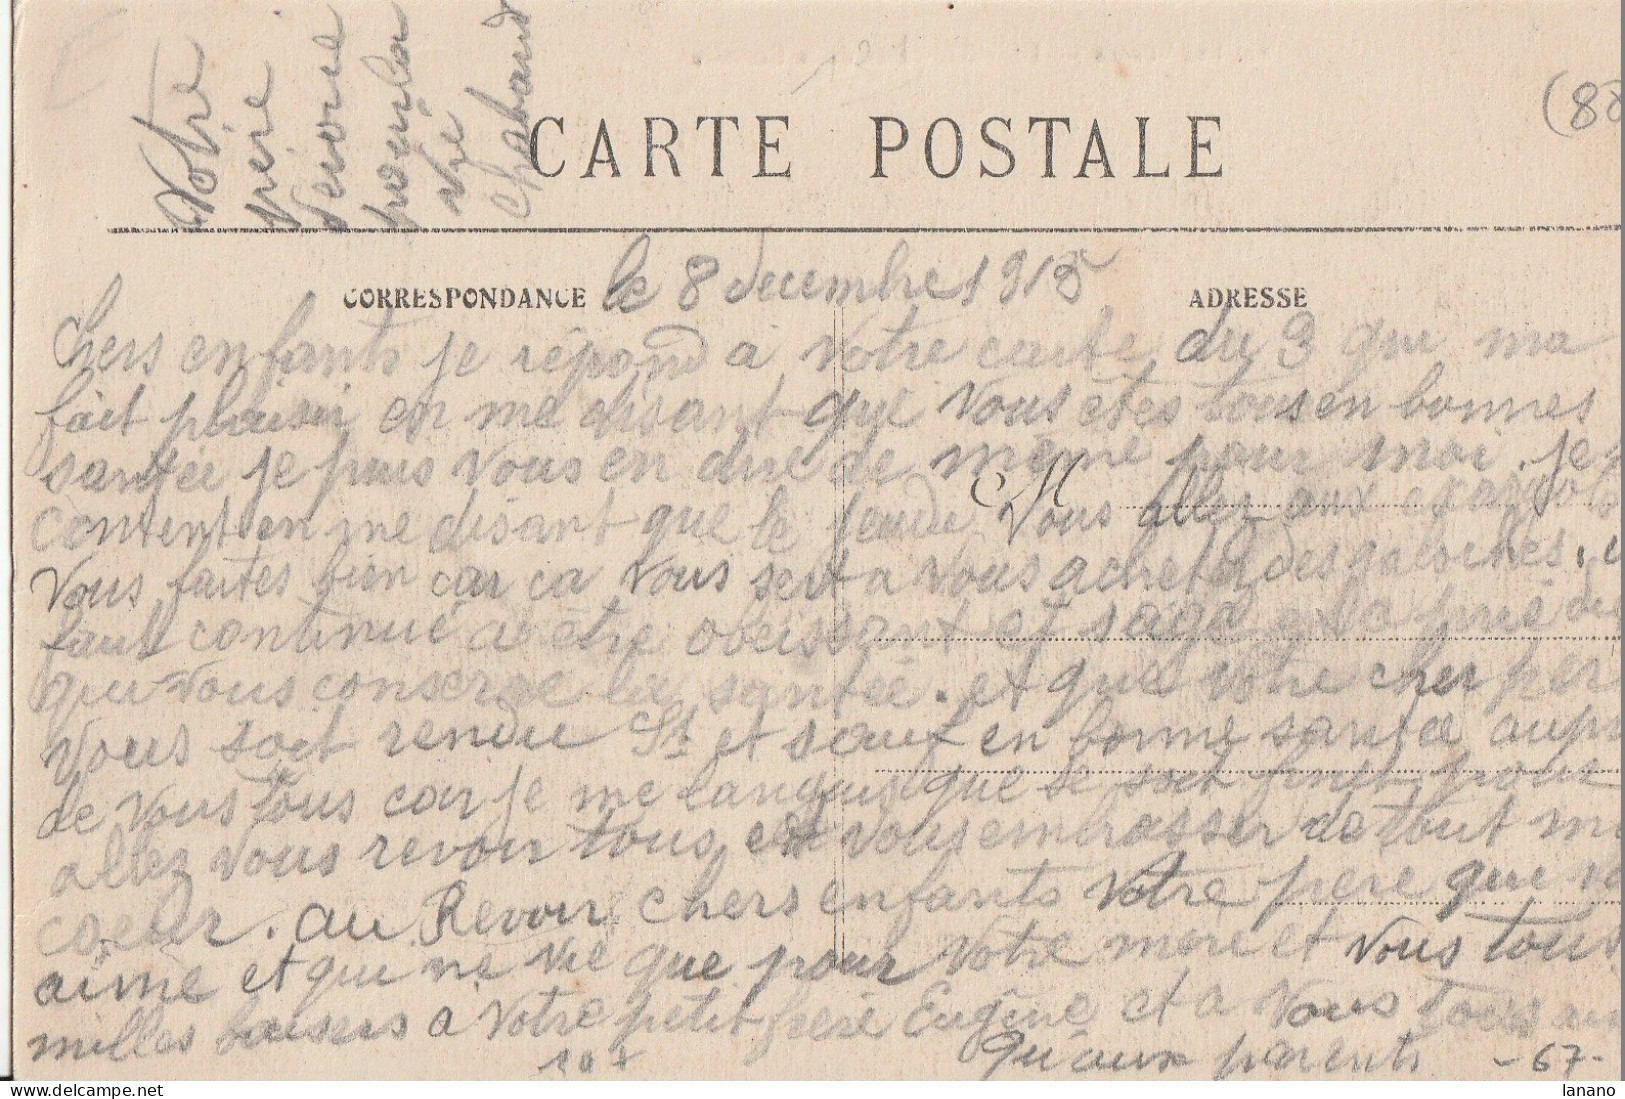 Votre
père
dévoué
pour la
vie
Chabaud
(88
CARTE POSTALE
CORRESPONDANCE
le 8 decembre 1915
ADRESSE
Chers enfants je répond a votre carte du 3 qui ma
fait plaisir en me disant que vous étes tous en bonnes
santée je puis vous en dire de même pour moi. je
M
content en me disant que le jeudi vous allez aux
vous faites bien car ca vous sert a vous acheter des galoches.
faut continué a être obeissant et
qui vous conserve la santée. et que votre cher per
vous soit rendu St et sauf en bonne santée aupr
de vous tous car je me languis que se soit finit pour
allez vous revoir tous et vous embrasser de tout m
coeur. au Revoir chers enfants votre pere que vo
aimé et qui ne vie que pour votre mere et vous tous
milles baisers a votre petit frere Eugène et a vous tous
qu'aux parents
107
-67-
lanano